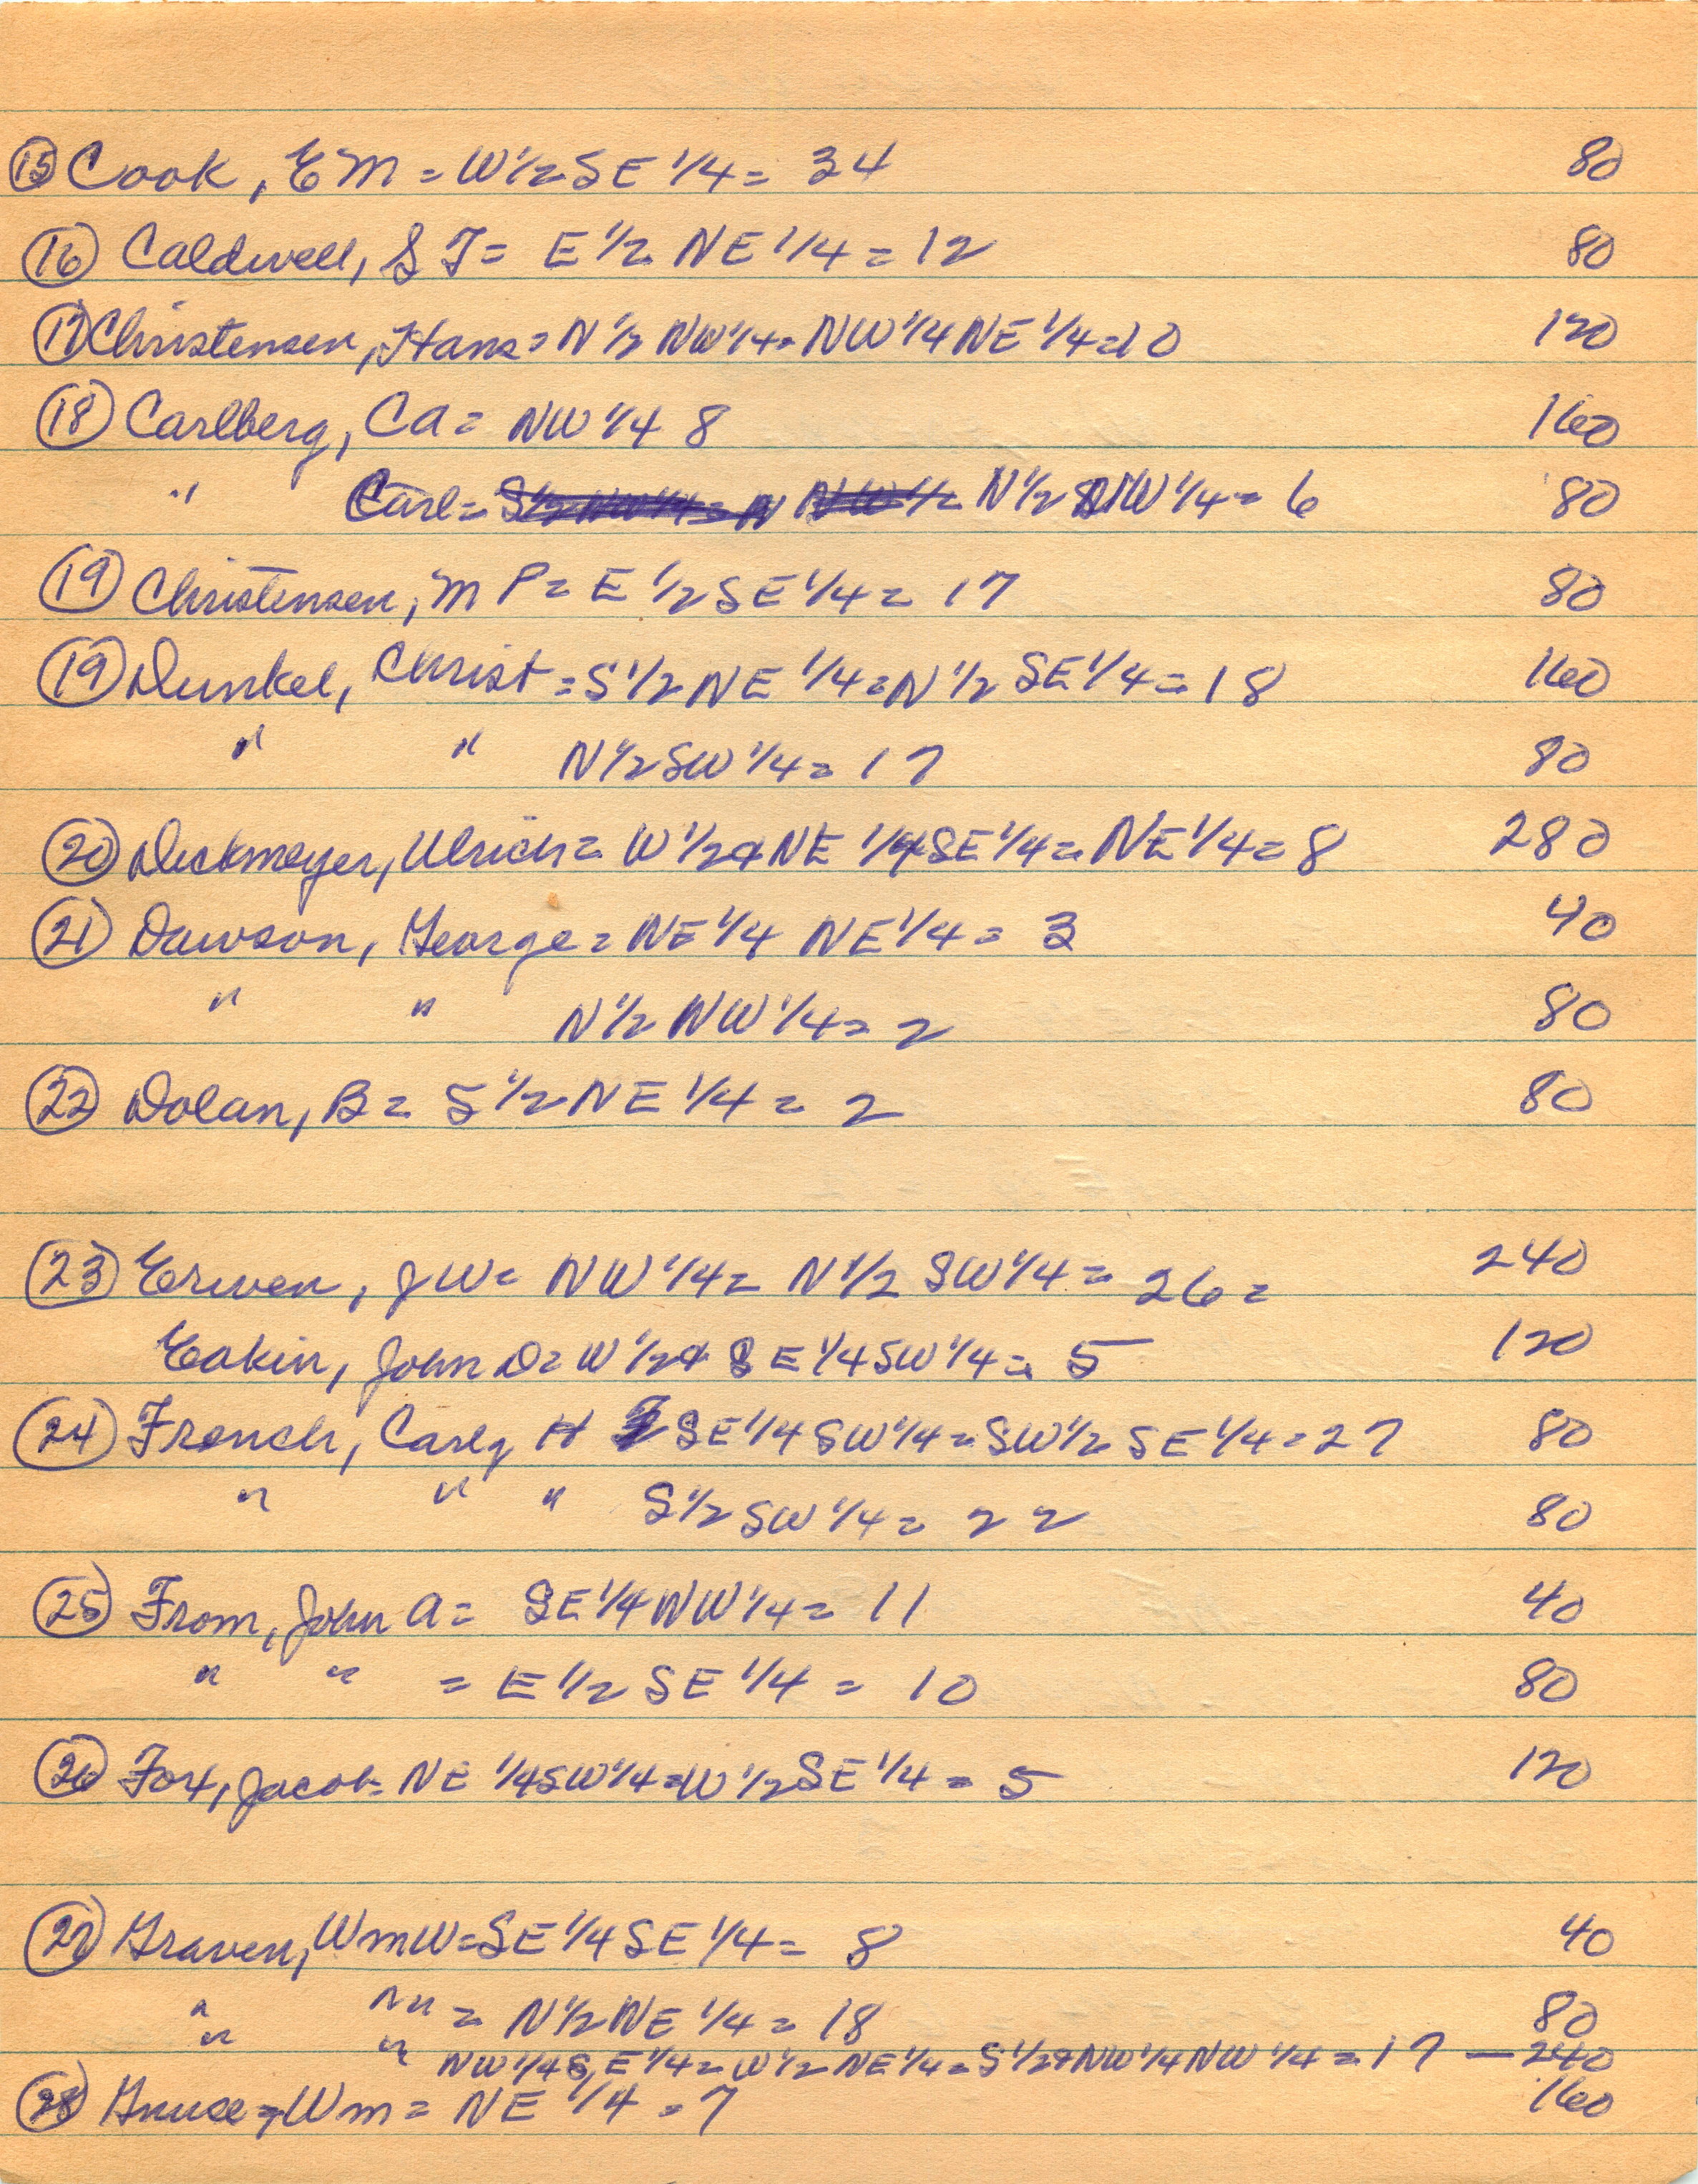 (15) Cook, EM = W 1/2 SE 1/4 = 34 80
(16) Caldwell, S T = E 1/2 NE 1/4 = 12 80
(17) Christensen, Hans = N 1/2 NW 1/4 = NW 1/4 NE 1/4 = 10 120
(18) Carlberg, CA = NW 1/4 8 160
" Carl = N 1/2 NW 1/4 = 6 80
(19) Christensen, M P = E 1/2 SE 1/4 = 17 80
(19) Dunkel, Christ = S 1/2 NE 1/4 = N 1/2 SE 1/4 = 18 160
" " N 1/2 SW 1/4 = 17 80
(20) Dickmeyer, Ulrich = W 1/2 & NE 1/4 SE 1/4 = NE 1/4 = 8 280
(21) Dawson, George = NE 1/4 NE 1/4 = 3 40
" " N 1/2 NW 1/4 = 2 80
(22) Dolan, B = S 1/2 NE 1/4 = 2 80
(23) Erwen, J W = NW 1/4 = N 1/2 SW 1/4 = 26 = 240
Eakin, John D = W 1/2 & SE 1/4 SW 1/4 = 5 120
(24) French, Carey H SE 1/4 SW 1/4 = SW 1/2 SE 1/4 = 27 80
" " " S 1/2 SW 1/4 = 22 80
(25) From, John A = SE 1/4 NW 1/4 = 11 40
" " = E 1/2 SE 1/4 = 10 80
(26) Fox, Jacob = NE 1/4 SW 1/4 = W 1/2 SE 1/4 = 5 120
(27) Graven, Wm W = SE 1/4 SE 1/4 = 8 40
" " " = N 1/2 NE 1/4 = 18 80
" " NW 1/4 S,E 1/4 = W 1/2 NE 1/4 = S 1/2 & NW 1/4 NW 1/4 = 17 — 240
(28) Wm = NE 1/4 = 7 160